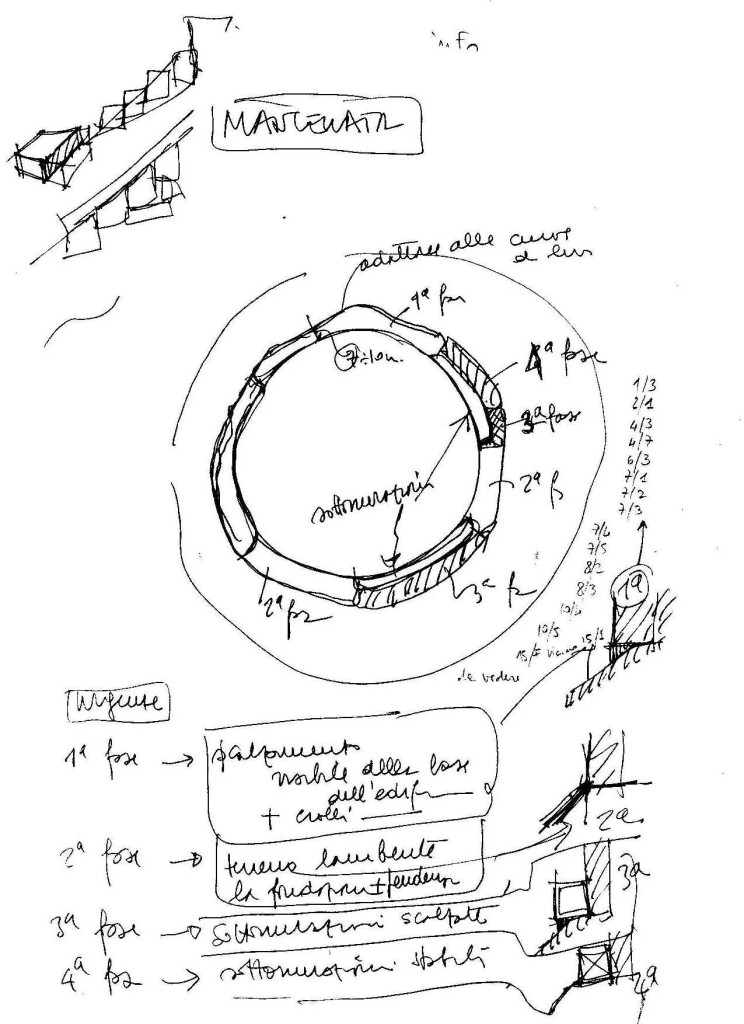 info
adattare alle curve
di liv
1ª fase
4ª fase
3ª fase
2ª f
sottomurazioni
3ª fz
2ª fz
1/3
2/1
4/3
4/7
6/3
7/1
7/2
7/3
7/4
7/5
8/2
8/3
10/4
10/5
15/1
1ª
da vedere
Urgenze
1ª fase → scalzamento
visibile della base
dell'edif
+ crolli
2ª fase → terreno lambente
la fondazione + fondazion
2ª
3ª fase → sottomurazioni scalzate
3ª
4ª fz → sottomurazioni stabili
4ª